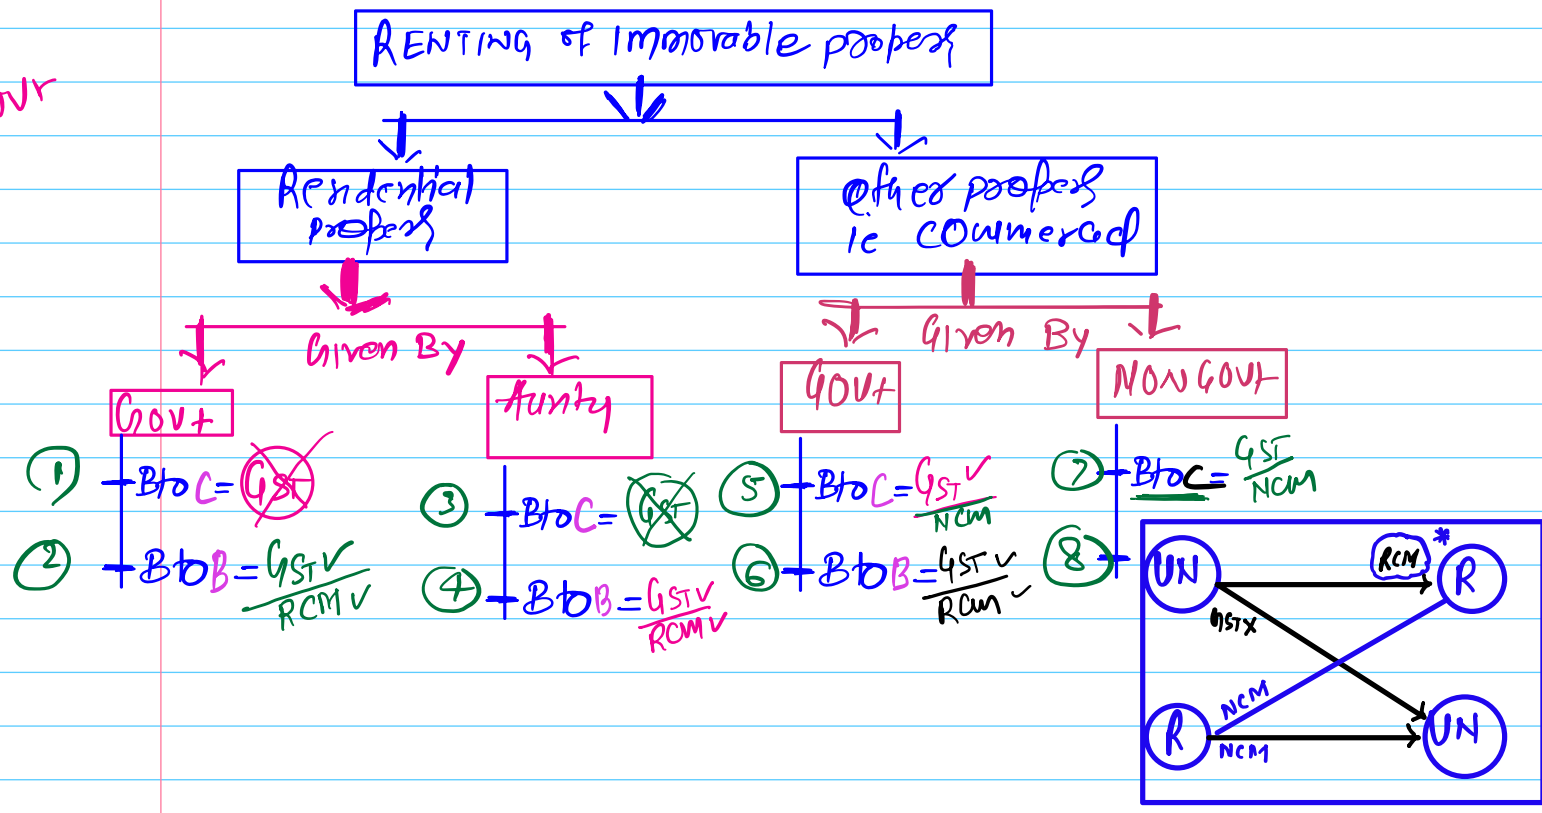 RENTING of Immovable property
ovr
Residential
property
Other property
ie commercial
Given By
Given By
Govt
Aunty
GOVt
NON GOVt
① BtoC = GST
② BtoB = GST✓
RCM✓
③ BtoC = GST
④ BtoB = GST✓
RCM✓
⑤ BtoC = GST✓
NCM
⑥ BtoB = GST✓
RCM✓
⑦ BtoC = GST
NCM
⑧
UN
RCM *
R
GSTX
NCM
R
NCM
UN